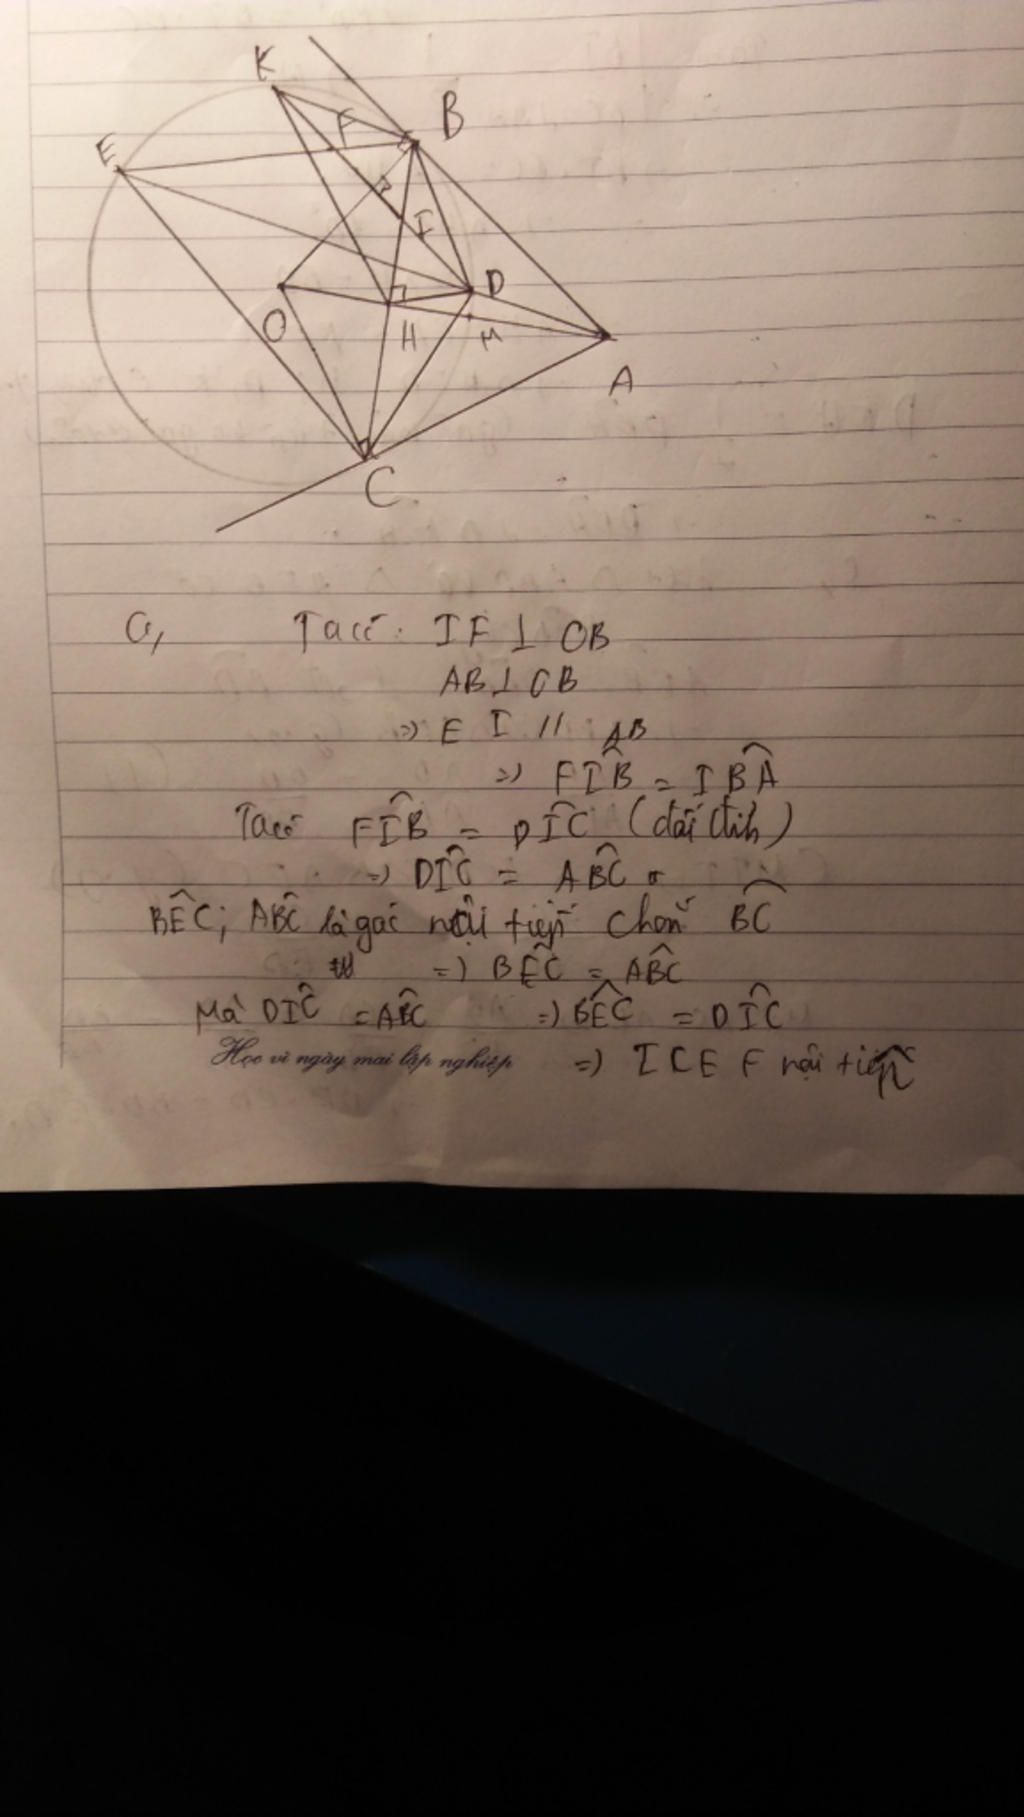 K
B
F
E
I
D
O
H
M
A
C
a, Ta có: IF ⊥ OB
AB ⊥ OB
=> E I // AB
=> FIB̂ = IBÂ
Ta có FIB̂ = DIĈ (đối đỉnh)
=> DIĈ = ABĈ
BEĈ; ABĈ là góc nội tiếp chắn BC
=> BEĈ = ABĈ
Mà DIĈ = ABĈ => BEĈ = DIĈ
Học vì ngày mai lập nghiệp => ICEF nội tiếp